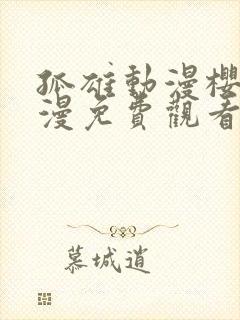 孤雄動漫櫻
漫免費觀看
慕城逍